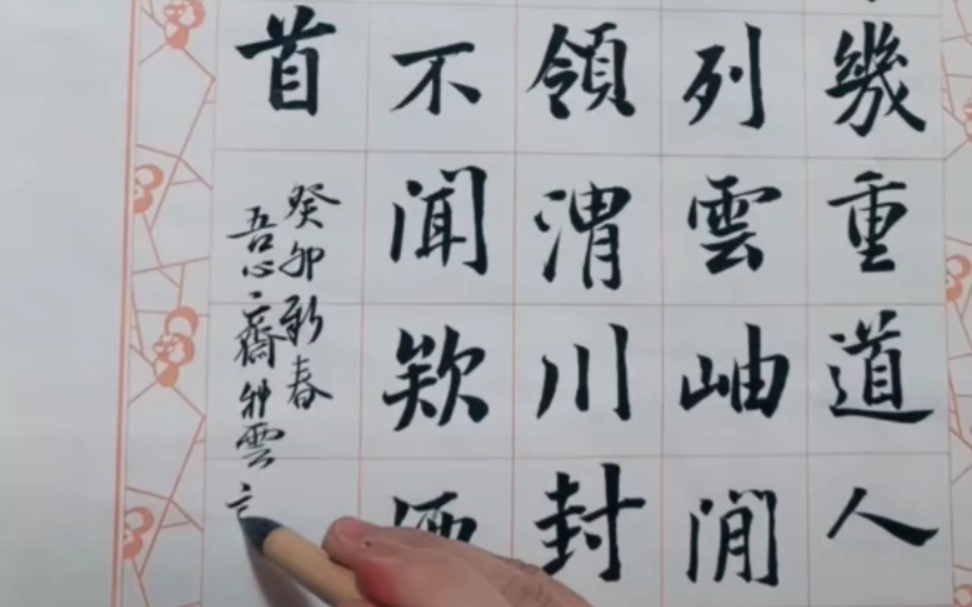 幾重道人
列雲岫閒
領渭川封
不聞欵
首
癸卯新春
吾心齋
雲